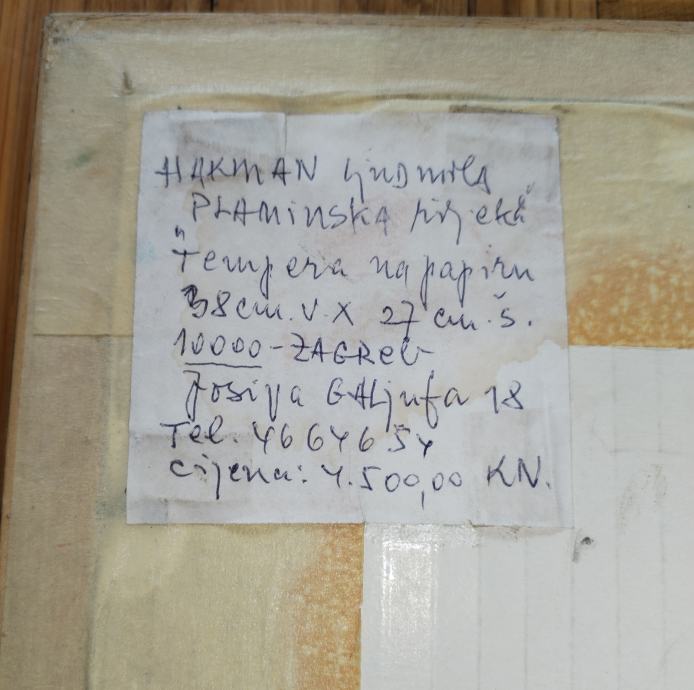 HAKMAN Ljudmila
"PLAMinsKA rijeka"
Tempera na papiru
38 cm. V. X 27 cm. Š.
10000 - ZAGReb
Josipa GALjufa 18
Tel. 4664654
cijena: 4.500,00 KN.